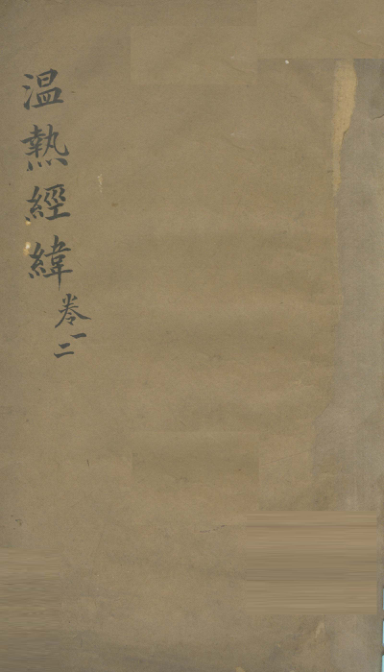 温熱經緯
卷一二